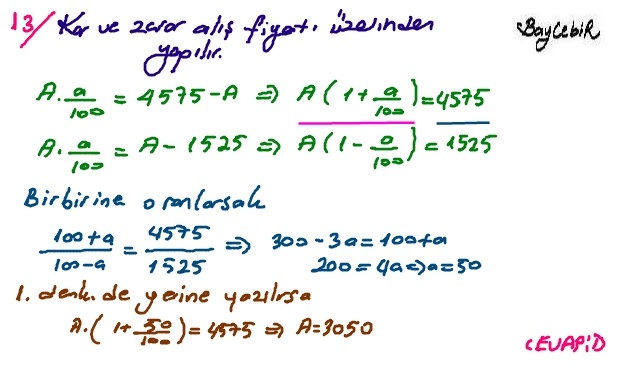 13/ Kar ve zarar alış fiyatı üzerinden yapılır.
BayCebiR
A. a/100 = 4575 - A ⇒ A(1 + a/100) = 4575
A. a/100 = A - 1525 ⇒ A(1 - a/100) = 1525
Birbirine oranlarsak
100+a/100-a = 4575/1525 ⇒ 300 - 3a = 100+a
200 = 4a ⇒ a = 50
1. denk. de yerine yazılırsa
A. (1 + 50/100) = 4575 ⇒ A = 3050
CEVAP: D